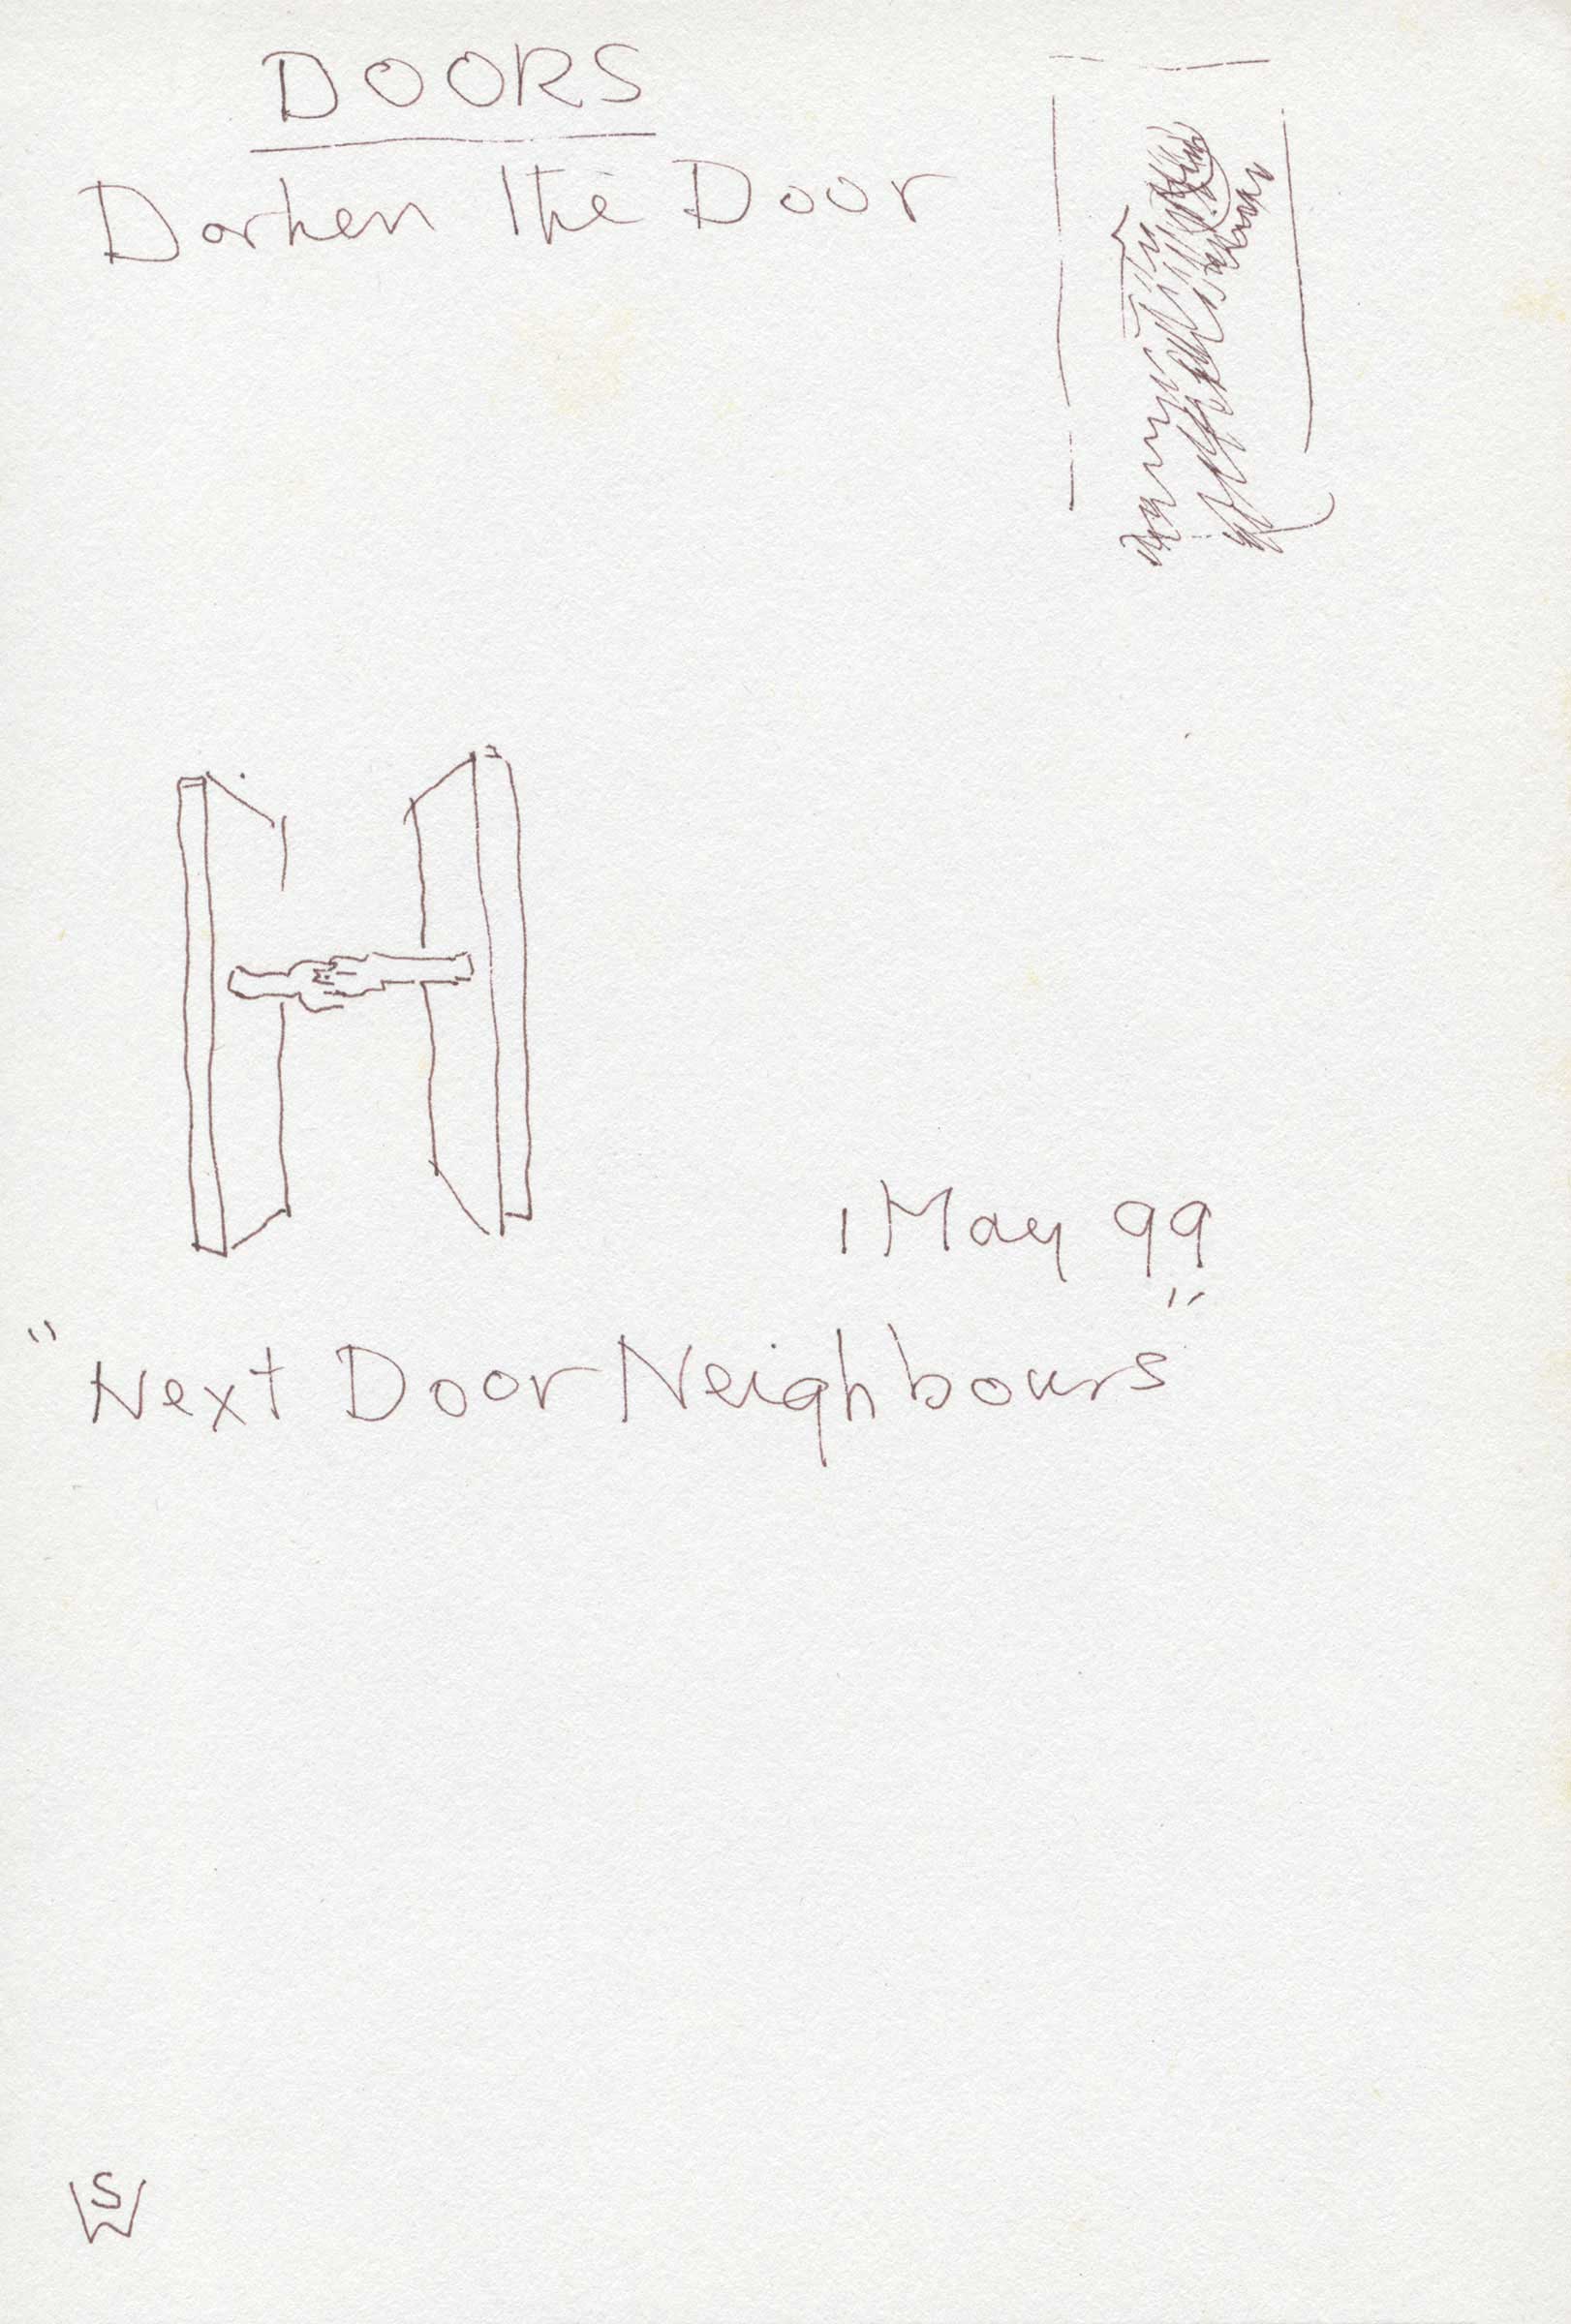 DOORS
Darken the Door
1 May 99
"Next Door Neighbours"
SW